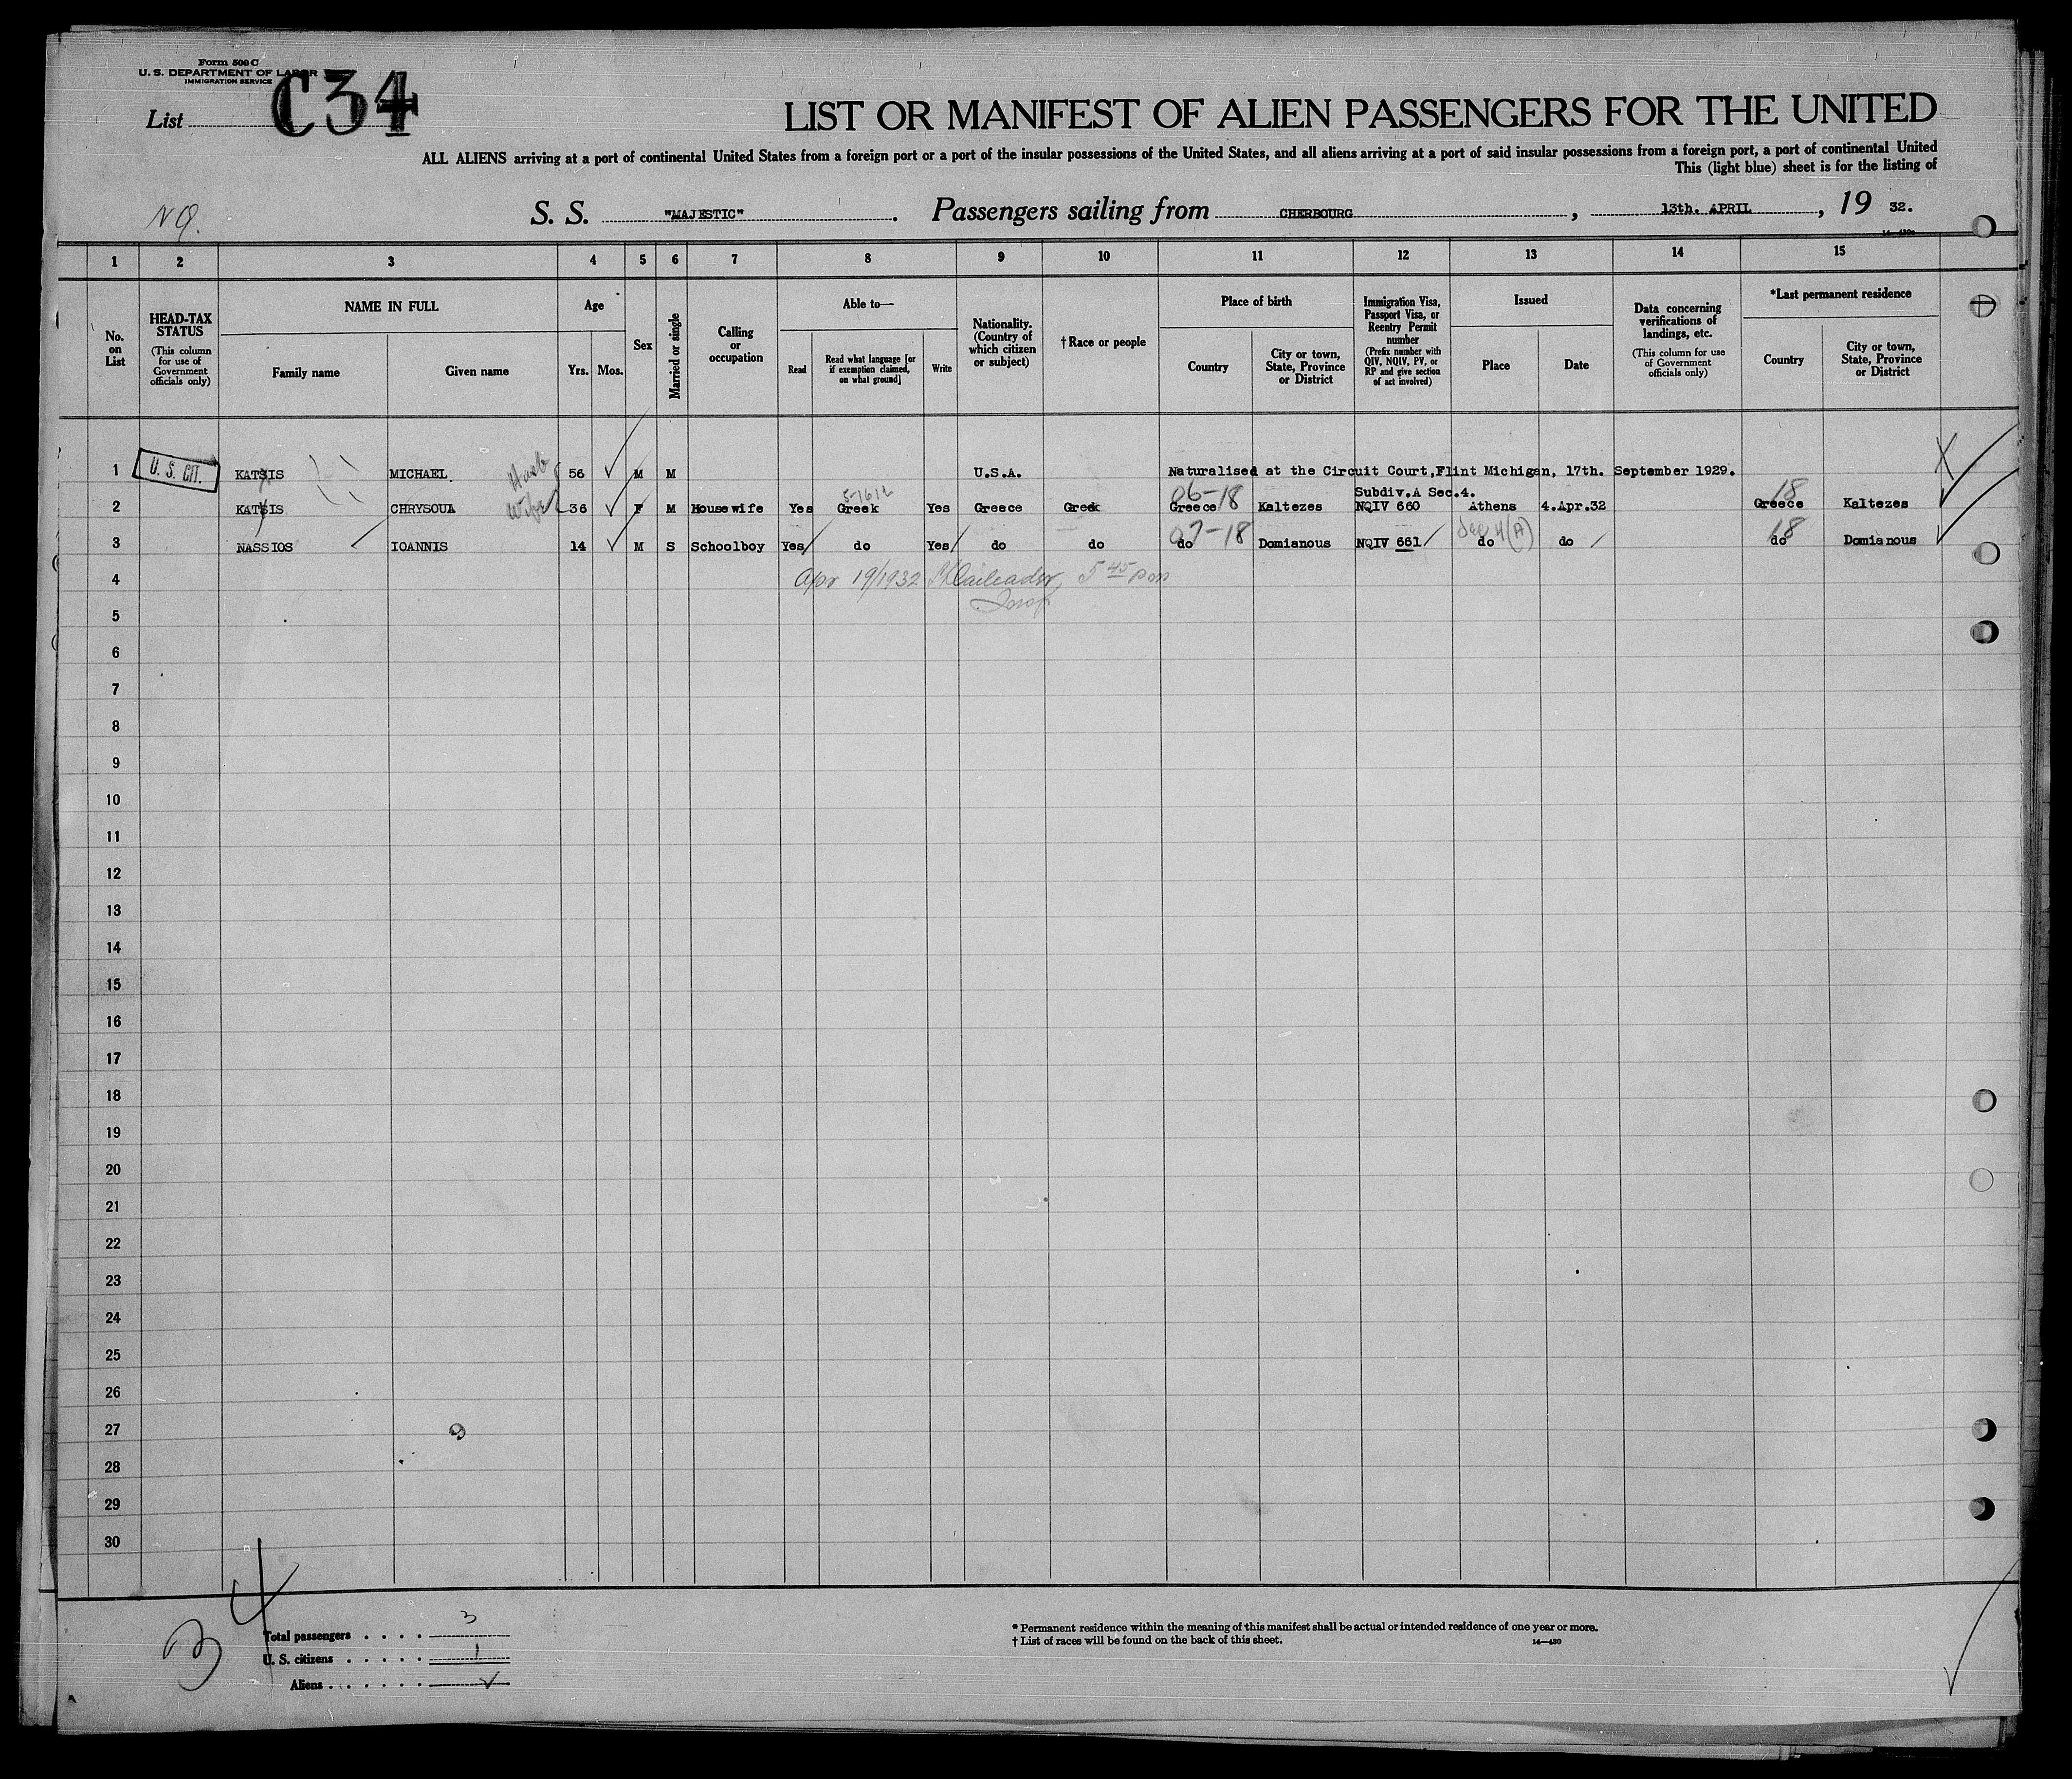 Form 500 C
U. S. DEPARTMENT OF LABOR
IMMIGRATION SERVICE
List C34
LIST OR MANIFEST OF ALIEN PASSENGERS FOR THE UNITED
ALL ALIENS arriving at a port of continental United States from a foreign port or a port of the insular possessions of the United States, and all aliens arriving at a port of said insular possessions from a foreign port, a port of continental United
This (light blue) sheet is for the listing of
NQ. S. S. "MAJESTIC". Passengers sailing from CHERBOURG, 13th. APRIL, 19 32.
1 2 3 4 5 6 7 8 9 10 11 12 13 14 15
No. on List
HEAD-TAX STATUS
(This column for use of Government officials only)
NAME IN FULL
Family name Given name
Age
Yrs. Mos.
Sex
Married or single
Calling or occupation
Able to—
Read Read what language [or if exemption claimed, on what ground] Write
Nationality. (Country of which citizen or subject)
†Race or people
Place of birth
Country City or town, State, Province or District
Immigration Visa, Passport Visa, or Reentry Permit number
(Prefix number with QIV, NQIV, PV, or RP and give section of act involved)
Issued
Place Date
Data concerning verifications of landings, etc.
(This column for use of Government officials only)
*Last permanent residence
Country City or town, State, Province or District
1 U. S. CIT. KATSIS MICHAEL Husb 56 M M U.S.A. Naturalised at the Circuit Court,Flint Michigan, 17th. September 1929.
5-1612 06-18 Subdiv.A Sec.4. 18
2 KATSIS CHRYSOULA Wife 36 F M Housewife Yes Greek Yes Greece Greek Greece Kaltezes NQIV 660 Athens 4.Apr.32 Greece Kaltezes
07-18 Sec 4 (A) 18
3 NASSIOS IOANNIS 14 M S Schoolboy Yes do Yes do do do Domianous NQIV 661 do do do Domianous
4 Apr 19/1932 5 45 pm
5
6
7
8
9
10
11
12
13
14
15
16
17
18
19
20
21
22
23
24
25
26
27
28
29
30
Total passengers . . . . 3
U. S. citizens . . . . . 1
Aliens . . . . . .
* Permanent residence within the meaning of this manifest shall be actual or intended residence of one year or more.
† List of races will be found on the back of this sheet.
14—430